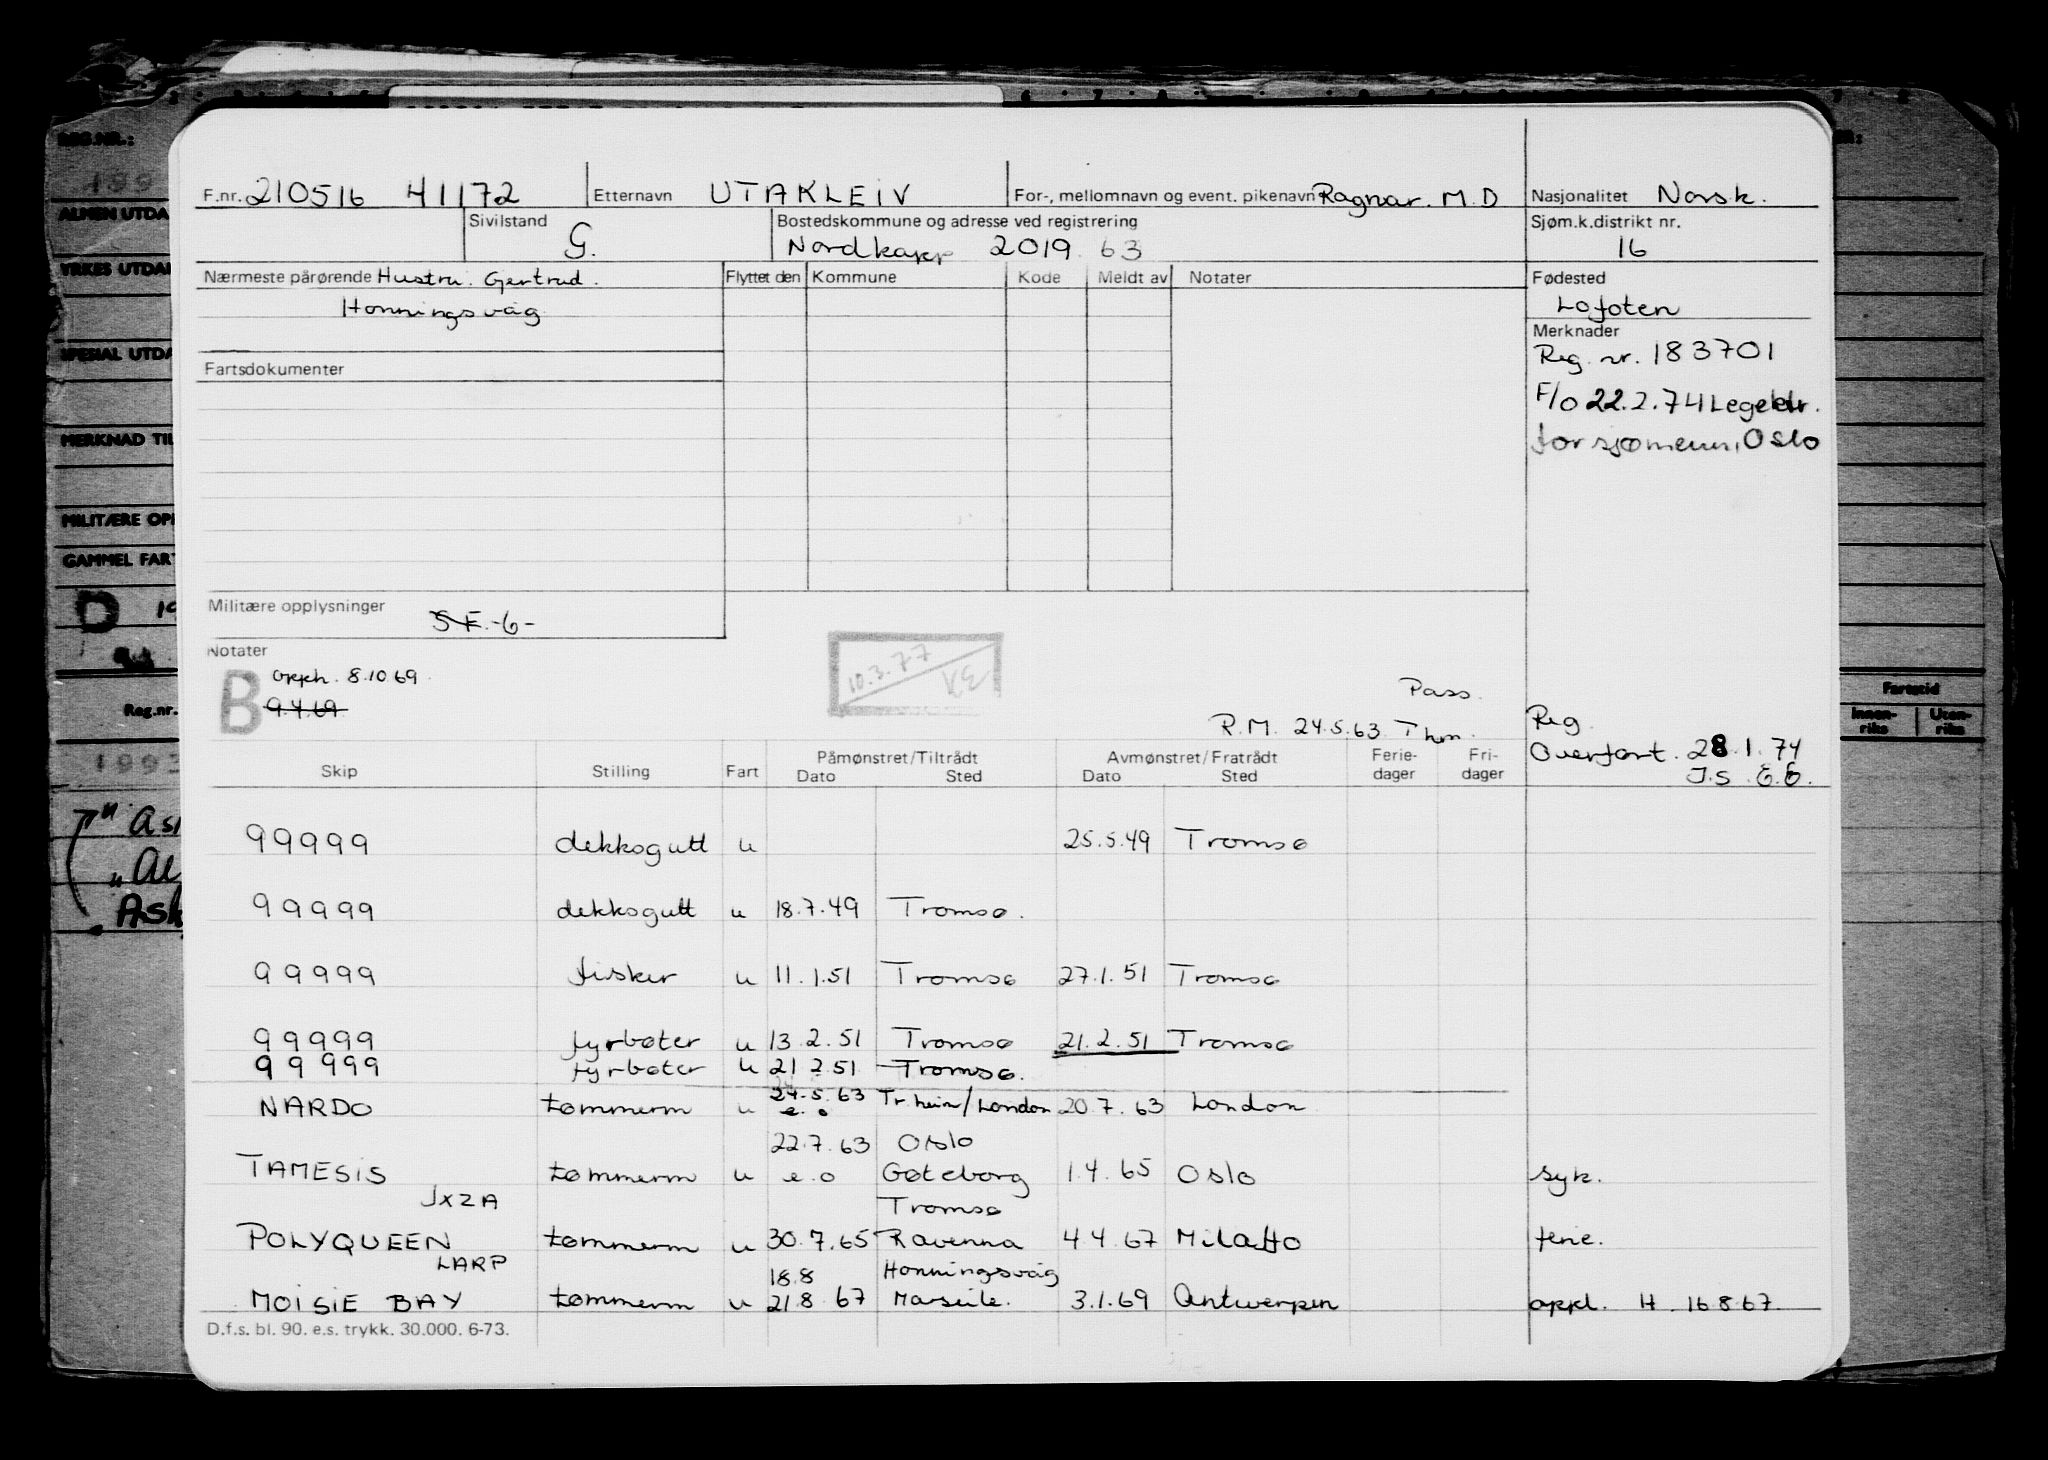 F.nr. 210516 41172 Etternavn UTAKLEIV For-, mellomnavn og event. pikenavn Ragnar. M.D Nasjonalitet Norsk.
Sivilstand G. Bostedskommune og adresse ved registrering Sjøm.k.distrikt nr.
Nordkapp 2019. 63 16
Nærmeste pårørende Hustru. Gertrud. Flyttet den Kommune Kode Meldt av Notater Fødested
Honningsvåg Lofoten
Merknader
Reg. nr. 183701
Fartsdokumenter
F/o 22.2.74 Legektr.
for sjømenn, Oslo
Militære opplysninger S.F.-6-
Notater
B opph. 8.10.69
9.4.69
10.3.77
Pass.
R.M. 24.5.63 Thm. Reg.
Overført. 28.1.74
J.S. E.6.
Skip Stilling Fart Påmønstret/Tiltrådt Avmønstret/Fratrådt Ferie- Fri-
Dato Sted Dato Sted dager dager
99999 dekksgutt u 25.5.49 Tromsø
99999 dekksgutt u 18.7.49 Tromsø.
99999 fisker u 11.1.51 Tromsø 27.1.51 Tromsø
99999 fyrbøter u 13.2.51 Tromsø 21.2.51 Tromsø
99999 fyrbøter u 21.2.51 Tromsø.
NARDO tømmerm u 24.5.63 Tr.heim/London 20.7.63 London
e.o
22.7.63 Oslo
TAMESIS tømmerm u e.o Gøteborg 1.4.65 Oslo syk.
JXZA Tromsø
POLYQUEEN tømmerm u 30.7.65 Ravenna 4.4.67 Milatto ferie.
LARP 18.8 Honningsvåg
MOISIE BAY tømmerm u 21.8.67 Marseile. 3.1.69 Antwerpen oppl. H. 16.8.67.
D.f.s. bl. 90. e.s. trykk. 30.000. 6-73.
REG.NR.:
199
ALMEN UTDA
YRKES UTDA
SPESIAL UTDA
MERKNAD TIL
MILITÆRE OP
GAMMEL FAR
D 19
Reg.nr.
1993
Fartstid
Innen-
riks
Uten-
riks